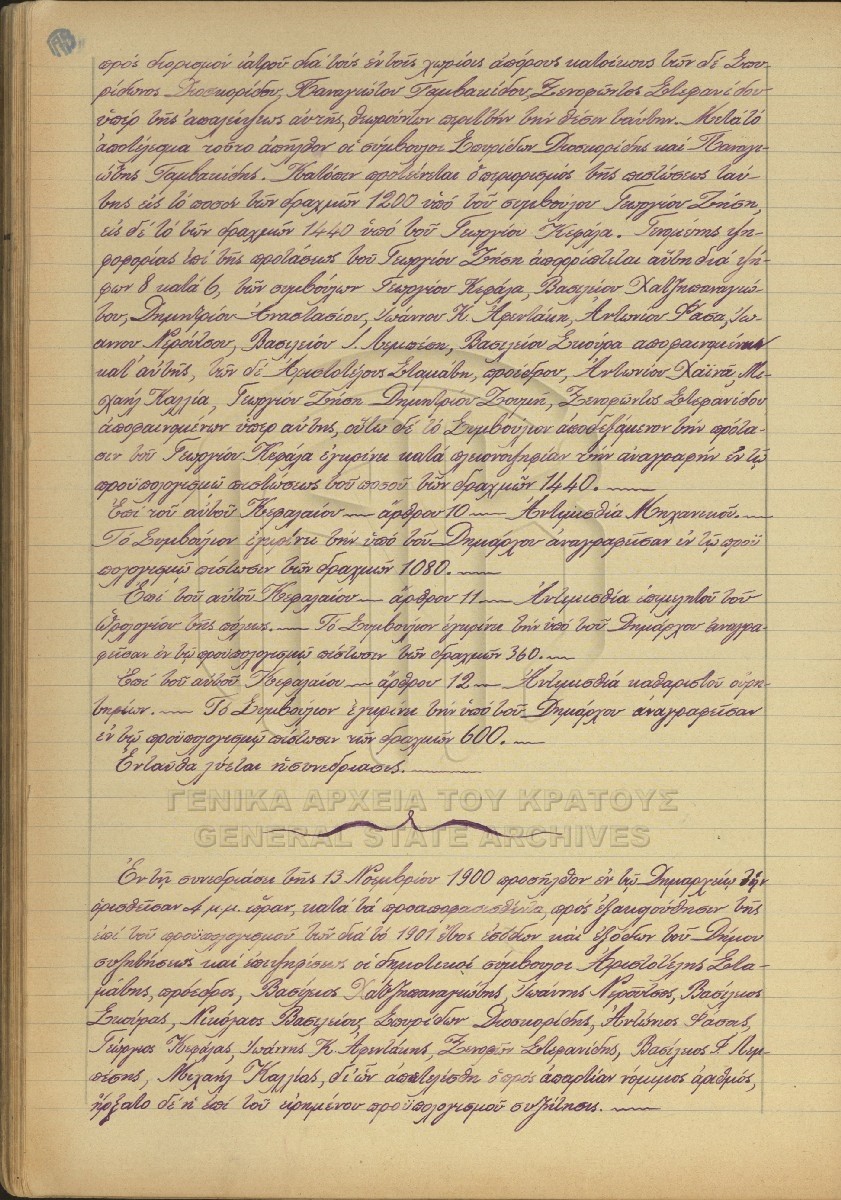 πρὸς διορισμὸν ἰατροῦ διὰ τοὺς ἐν τοῖς χωρίοις ἀπόρους κατοίκους τῶν δὲ Σπυ-
ρίδωνος Διοσκορίδου, Παναγιώτου Γαμβακίδου, Ξενοφῶντος Στεφανίδου
ὑπὲρ τῆς ἀπαλείψεως αὐτῆς, θεωρούντων περιττὴν τὴν θέσιν ταύτην. Μετὰ τὸ
ἀποτέλεσμα τοῦτο ἀπῆλθον οἱ σύμβουλοι Σπυρίδων Διοσκορίδης καὶ Παναγι-
ώτης Γαμβακίδης. Κατόπιν προτείνεται ὁ περιορισμὸς τῆς πιστώσεως ταύ-
της εἰς τὸ ποσὸν τῶν δραχμῶν 1200 ὑπὸ τοῦ συμβούλου Γεωργίου Ζήση,
εἰς δὲ τὸ τῶν δραχμῶν 1440 ὑπὸ τοῦ Γεωργίου Κεφάλα. Γενομένης ψη-
φοφορίας ἐπὶ τῆς προτάσεως τοῦ Γεωργίου Ζήση ἀπορρίπτεται αὕτη διὰ ψή-
φων 8 κατὰ 6, τῶν συμβούλων Γεωργίου Κεφάλα, Βασιλείου Χατζηπαναγιώ-
του, Δημητρίου Ἀναστασίου, Ἰωάννου Κ. Ἀρεντάκη, Ἀντωνίου Φάσα, Ἰω-
άννου Νερούτσου, Βασιλείου Ι. Λεμπέση, Βασιλείου Σκούρα ἀποφαινομένων
κατ' αὐτῆς, τῶν δὲ Ἀριστοτέλους Σταμάτη, προέδρου, Ἀντωνίου Χαϊνᾶ, Μι-
χαὴλ Καλλία, Γεωργίου Ζήση Δημητρίου Ζούμη, Ξενοφῶντος Στεφανίδου
ἀποφαινομένων ὑπὲρ αὐτῆς, οὕτω δὲ τὸ Συμβούλιον ἀποδεξάμενον τὴν πρότα-
σιν τοῦ Γεωργίου Κεφάλα ἐγκρίνει κατὰ πλειονοψηφίαν τὴν ἀναγραφὴν ἐν τῷ
προϋπολογισμῷ πιστώσεως τοῦ ποσοῦ τῶν δραχμῶν 1440.
Ἐπὶ τοῦ αὐτοῦ Κεφαλαίου — ἄρθρου 10 — Ἀντιμισθία Μηχανικοῦ. —
Τὸ Συμβούλιον ἐγκρίνει τὴν ὑπὸ τοῦ Δημάρχου ἀναγραφεῖσαν ἐν τῷ προϋ-
πολογισμῷ πίστωσιν τῶν δραχμῶν 1080. —
Ἐπὶ τοῦ αὐτοῦ Κεφαλαίου — ἄρθρου 11 — Ἀντιμισθία ἐπιμελητοῦ τοῦ
ὡρολογίου τῆς πόλεως. — Τὸ Συμβούλιον ἐγκρίνει τὴν ὑπὸ τοῦ Δημάρχου ἀναγρα-
φεῖσαν ἐν τῷ προϋπολογισμῷ πίστωσιν τῶν δραχμῶν 360. —
Ἐπὶ τοῦ αὐτοῦ Κεφαλαίου — ἄρθρου 12 — Ἀντιμισθία καθαριστοῦ οὐρη-
τηρίων. — Τὸ Συμβούλιον ἐγκρίνει τὴν ὑπὸ τοῦ Δημάρχου ἀναγραφεῖσαν
ἐν τῷ προϋπολογισμῷ πίστωσιν τῶν δραχμῶν 600. —
Ἐνταῦθα λύεται ἡ συνεδρίασις. —
ΓΕΝΙΚΑ ΑΡΧΕΙΑ ΤΟΥ ΚΡΑΤΟΥΣ
GENERAL STATE ARCHIVES
Ἐν τῇ συνεδριάσει τῆς 13 Νοεμβρίου 1900 προσῆλθον ἐν τῷ Δημαρχείῳ τὴν
ὁρισθεῖσαν 4 μ.μ. ὥραν, κατὰ τὰ προαποφασισθέντα, πρὸς ἐξακολούθησιν τῆς
ἐπὶ τοῦ προϋπολογισμοῦ τῶν διὰ τὸ 1901 ἔτος ἐσόδων καὶ ἐξόδων τοῦ Δήμου
συζητήσεως καὶ ἐπιψηφίσεως οἱ δημοτικοὶ σύμβουλοι Ἀριστοτέλης Στα-
μάτης, πρόεδρος, Βασίλειος Χατζηπαναγιώτης, Ἰωάννης Νερούτσος, Βασίλειος
Σκούρας, Νικόλαος Βασιλείου, Σπυρίδων Διοσκορίδης, Ἀντώνιος Φάσας,
Γεώργιος Κεφάλας, Ἰωάννης Κ. Ἀρεντάκης, Ξενοφῶν Στεφανίδης, Βασίλειος Ι. Λεμ-
πέσης, Μιχαὴλ Καλλίας, δι' ὧν ἀπετελέσθη ὁ πρὸς ἀπαρτίαν νόμιμος ἀριθμός,
ἤρξατο δὲ ἡ ἐπὶ τοῦ εἰρημένου προϋπολογισμοῦ συζήτησις. —